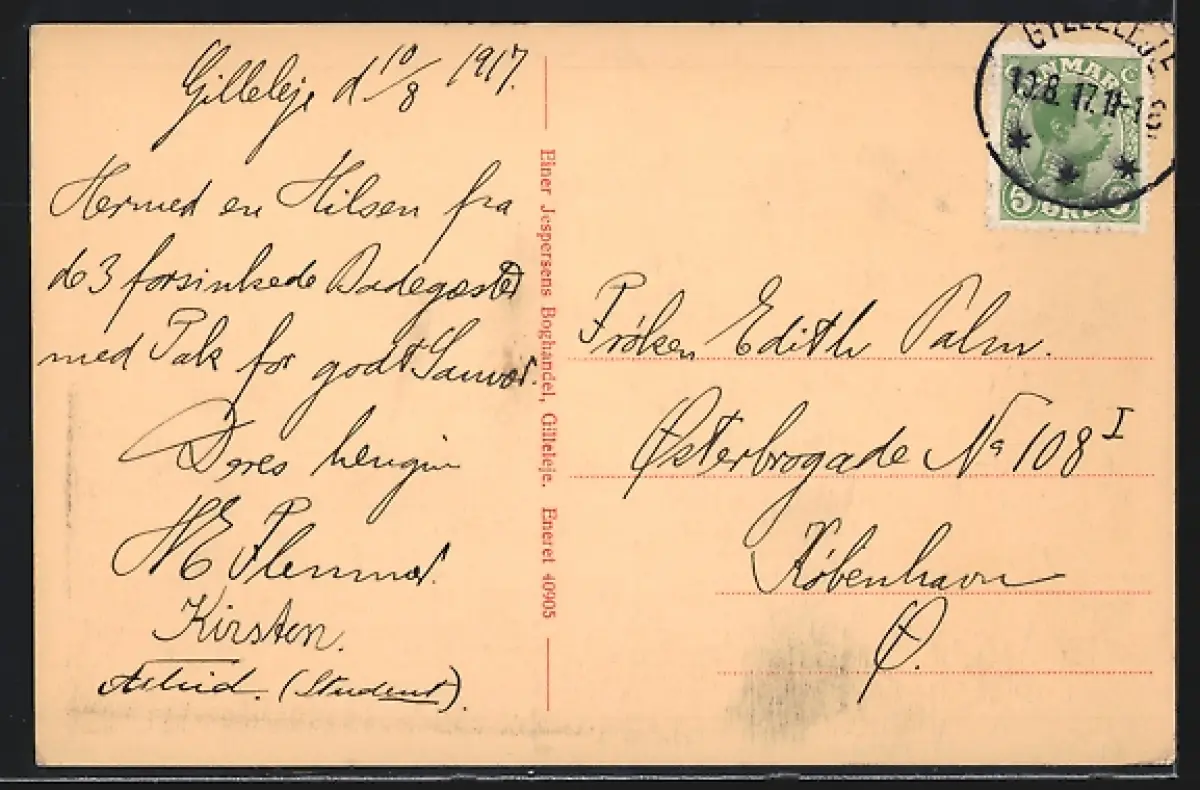 Gilleleje d 10/8 1917.
Hermed en Hilsen fra
de 3 forsinkede Badegæster
med Tak for godt Samvær.
Deres hengivne
Kirsten.
Astrid. (Student).
Einer Jespersens Boghandel, Gilleleje. Eneret 40905
GILLELEJE
10.8.17.11-
DANMARK
5 ØRE 5
Frøken Edith Palm.
Østerbrogade No 108 I
København
Ø.